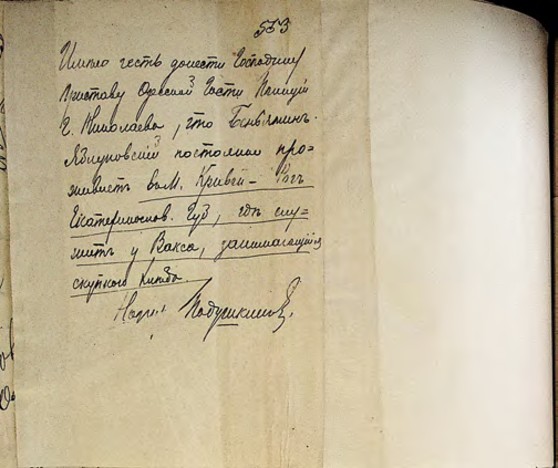 553
Имею честь донести Господину
Приставу Одесской Части Полиции
г. Николаева, что Беньямин
Яблуновский постоянно про=
живает в м. Кривой-Рог
Екатеринослов. Губ, где слу=
жит у Вакса, занимающийся
скупкого хлеба.
Надзи